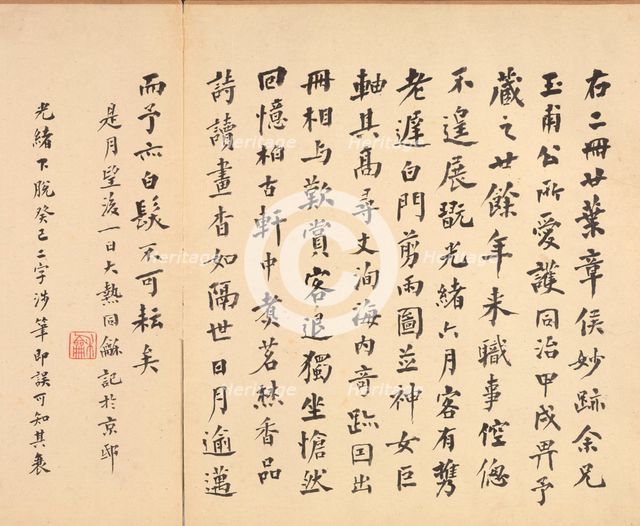 右二冊廿葉章侯妙跡余兄
玉甫公所愛護同治甲戌畀予
藏之廿餘年来職事倥傯
不遑展翫光緒六月客有攜
老遲白門剪雨圖並神女巨
軸其高尋丈洵海內奇跡因出
冊相与歎賞客退獨坐愴然
回憶柏古軒中煑茗焚香品
詩讀畫杳如隔世日月逾邁
而予亦白髮不可耘矣
是月望後一日大熱同龢記於京邸
光緒下脫癸巳二字涉筆即誤可知其衰
Heritage
Heritage
Heritage
Heritage
Heritage
Heritage